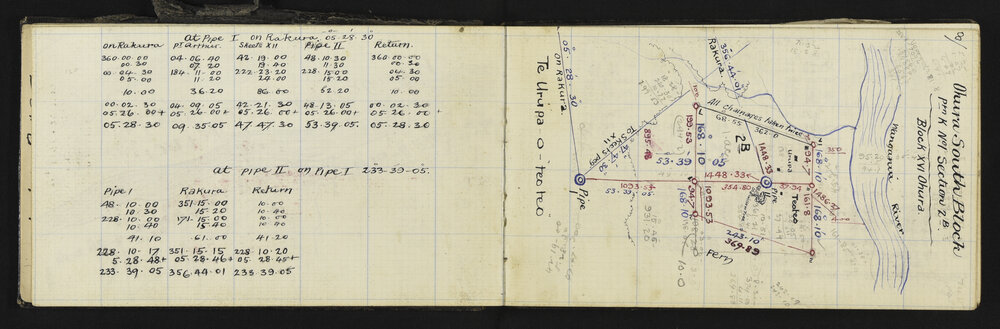 at Pipe I on Rakura 05.28.30
on Rakura Pt Arthur. Sheets XII Pipe II Return.
360.00.00 04.06.40 42.19.00 48.10.30 360.00.00
00.30 07.20 19.40 11.30 00.30
00.04.30 184.11.00 222.23.20 228.15.00 04.30
05.00 11.20 24.00 15.20 05.00
10.00 36.20 86.00 52.20 10.00
00.02.30 04.09.05 42.21.30 48.13.05 00.02.30
05.26.00+ 05.26.00+ 05.26.00+ 05.26.00+ 05.26.00
05.28.30 09.35.05 47.47.30 53.39.05 05.28.30
at pipe II on Pipe I 233.39.05
Pipe I Rakura Return
48.10.00 351.15.00 10.00
10.30 15.20 10.40
228.10.00 171.15.00 10.00
10.40 15.40 10.40
41.10 61.00 41.20
228.10.17 351.15.15 228.10.20
5.28.48+ 05.28.46+ 05.28.45+
233.39.05 356.44.01 233.39.05
8/
Ohura South Block
Pm N No 1 Section 2B
Block XVI Ohura
Mangania River
Te Urupa-o-teoteo
05.28.30
on Rakura.
356.44.01
Rakura.
All chainages taken twice
68.55
362.0
2B
to Sheets peg XII
47.47.30
895.48
193.53
168.10
1448.33
94.7
168.10
350
53.39.05
1448.33
1093.53
53.39.05
354.80
39.34
161.8
168.10
1486.37
Pipe
I
Pipe
II
Urupa
Teoteo
94.7
168.10
1093.53
243.10
369.89
Fern
10.0